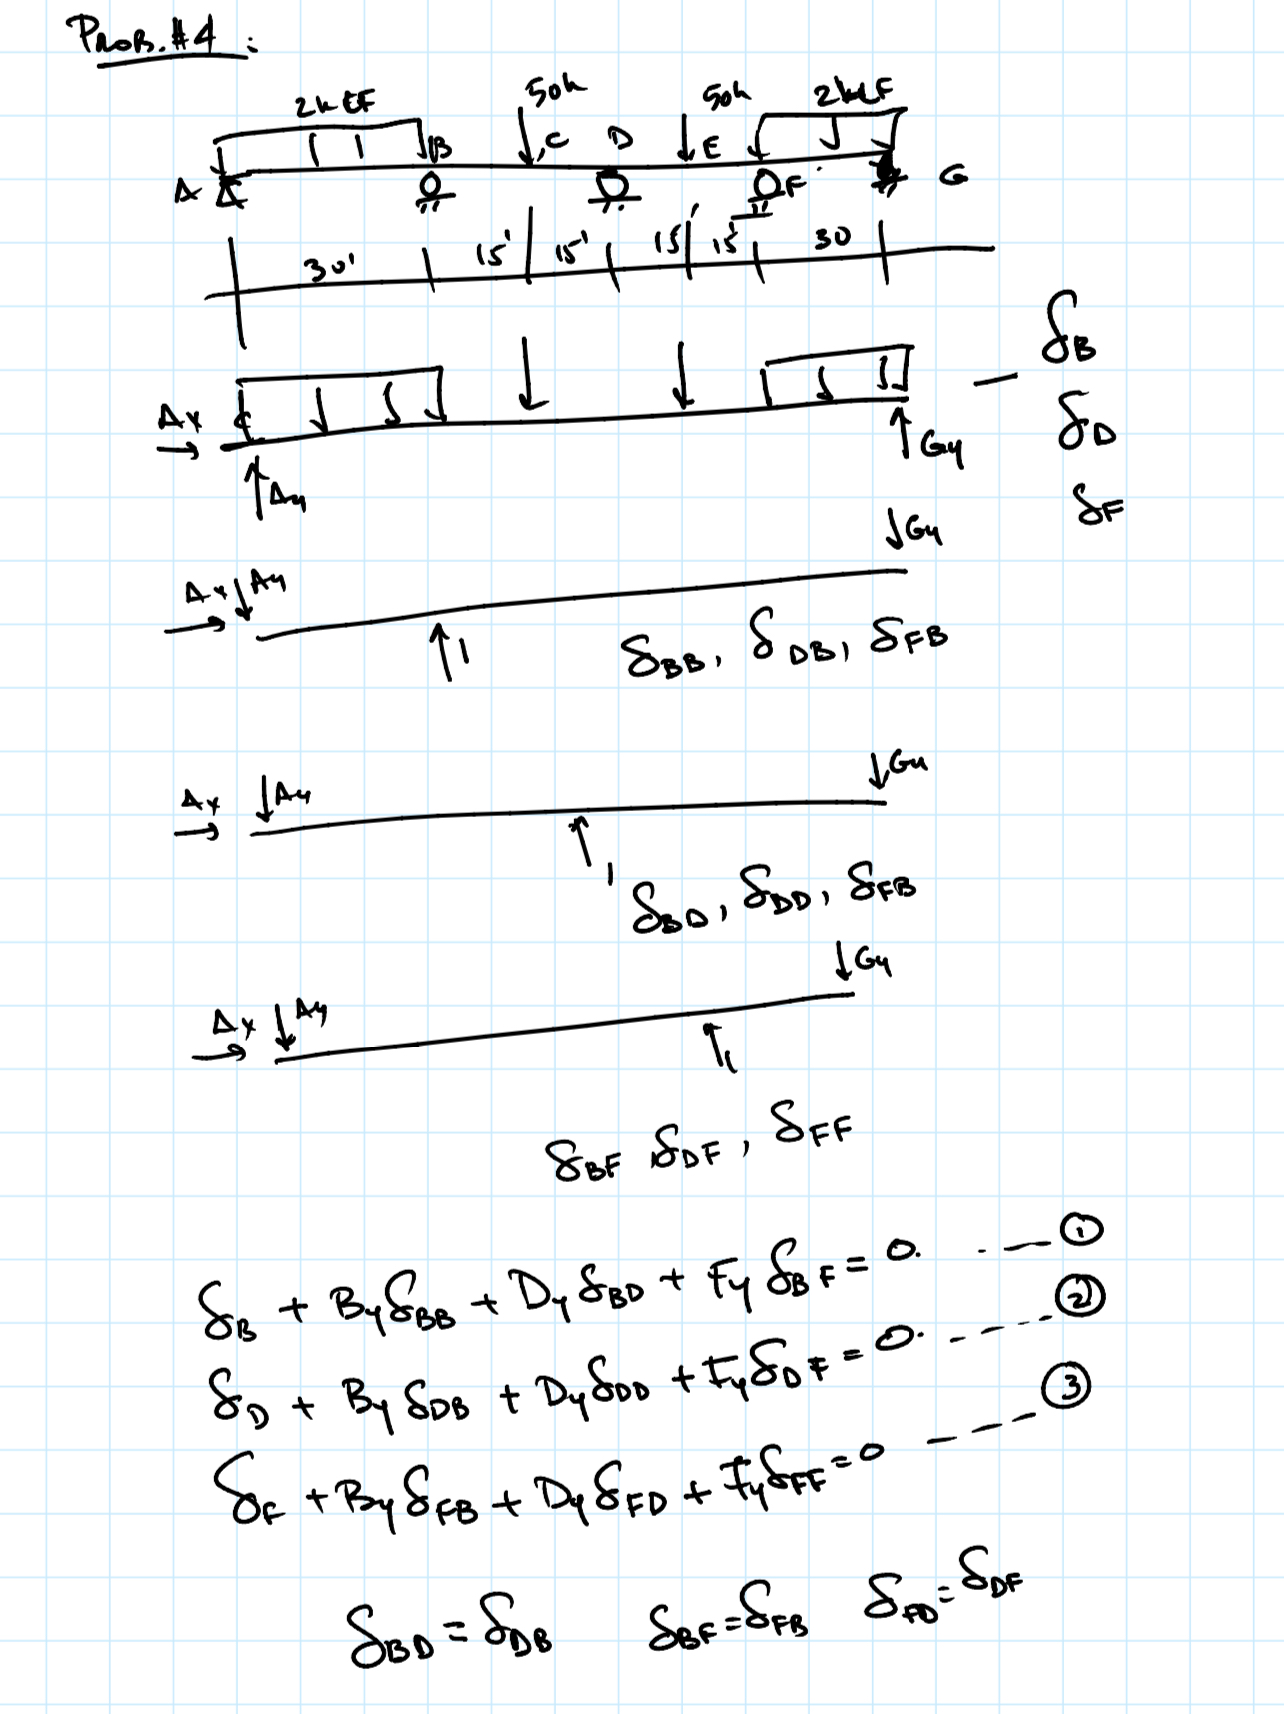 PROB. #4 :
2kLF 50k 50k 2kLF
A B C D E F G
30' 15' 15' 15' 15' 30
δB
Ax Ay Gy δD
δF
Gy
Ax Ay
1 δBB, δDB, δFB
Gy
Ax Ay
1
δBD, δDD, δFB
Gy
Ax Ay
1
δBF δDF, δFF
δB + ByδBB + DyδBD + FyδBF = 0. --- ①
δD + ByδDB + DyδDD + FyδDF = 0. ---- ②
δF + ByδFB + DyδFD + FyδFF = 0 ---- ③
δBD = δDB δBF = δFB δFD = δDF